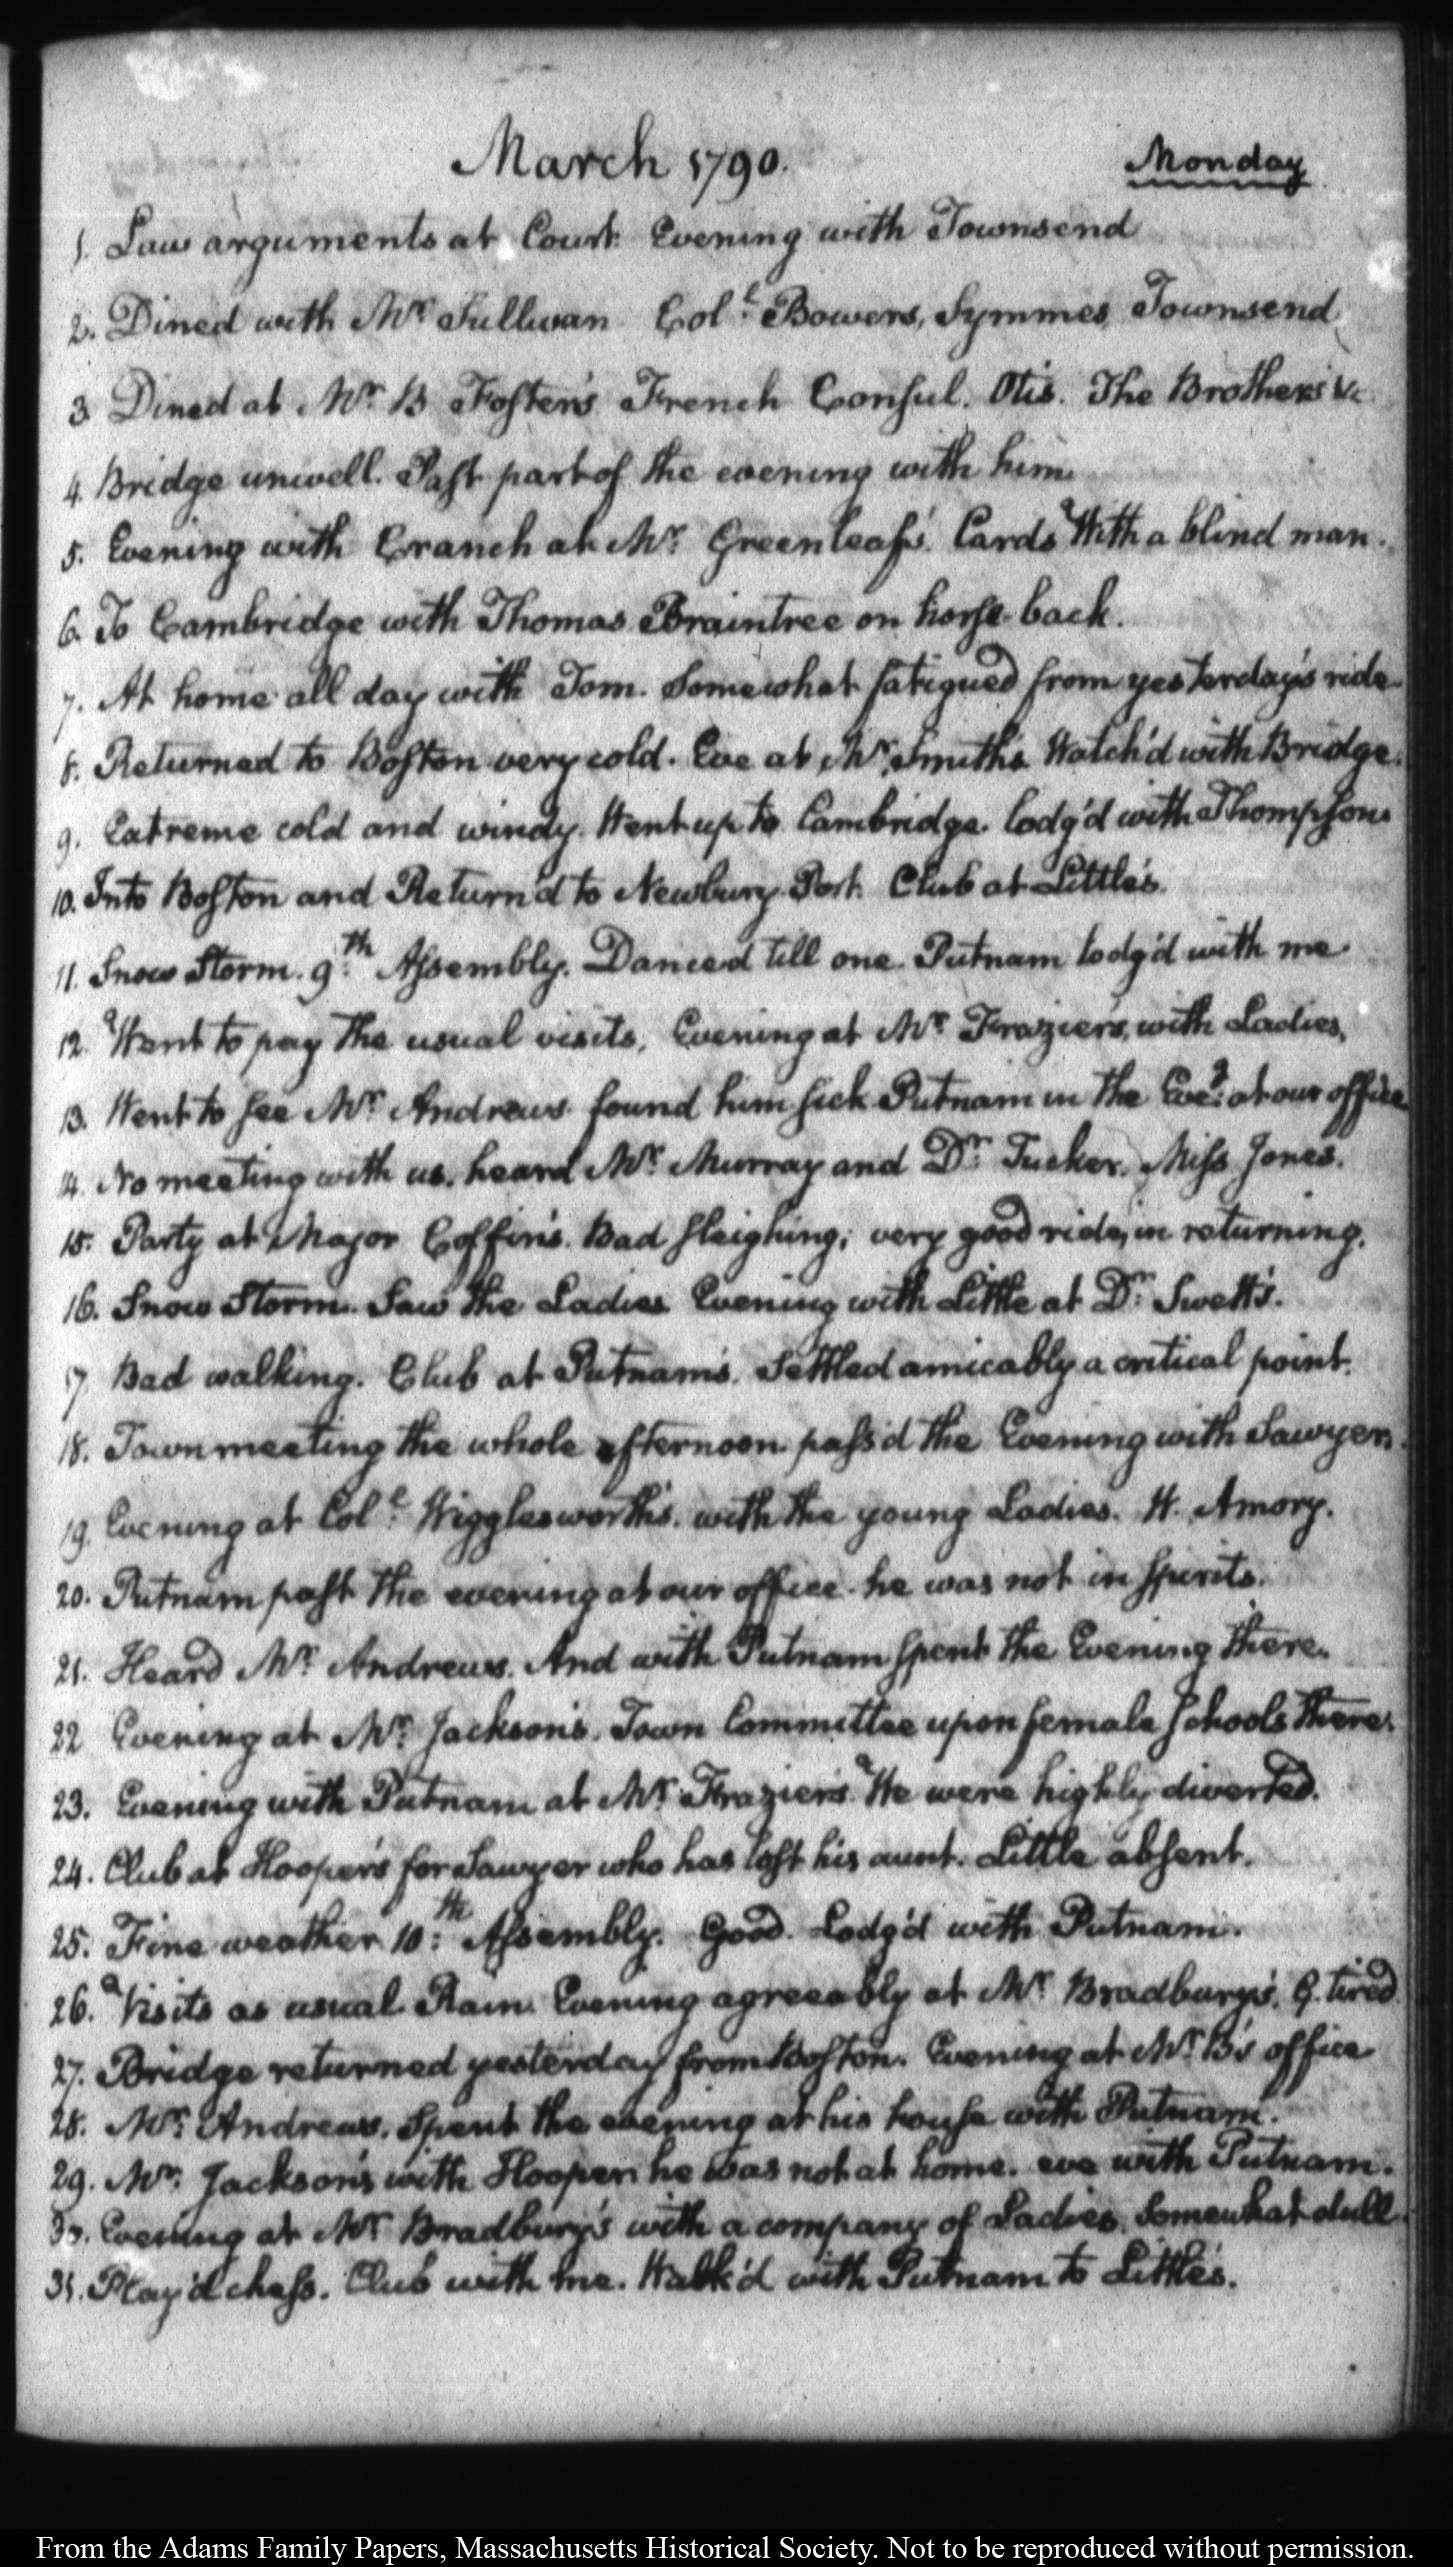 March 1790. Monday
1. Law arguments at Court. Evening with Townsend
2. Dined with Mr. Sullivan. Coll. Bowers, Symmes, Townsend
3. Dined at Mr. B Foster's French Consul. Otis. The Brothers &c
4. Bridge unwell. Past part of the evening with him.
5. Evening with Cranch at Mr. Greenleaf's. Cards With a blind man.
6. To Cambridge with Thomas Braintree on horse-back.
7. At home all day with Tom. Somewhat fatigued from yesterday's ride.
8. Returned to Boston very cold. Eve at Mr. Smith's. Watch'd with Bridge.
9. Extreme cold and windy. Went up to Cambridge. lodg'd with Thompson.
10. Into Boston and Return'd to Newbury-Port. Club at Little's.
11. Snow Storm. 9th. Assembly. Danced till one. Putnam lodg'd with me.
12. Went to pay the usual visits. Evening at Mr. Frazier's, with Ladies.
13. Went to see Mr. Andrews. found him sick Putnam in the Eveg. at our office.
14. No meeting with us. heard Mr. Murray and Dr. Tucker. Miss Jones.
15. Party at Major Coffin's. Bad sleighing; very good ride, in returning.
16. Snow Storm. Saw the Ladies. Evening with Little at Dr. Swett's.
17 Bad walking. Club at Putnam's. Settled amicably a critical point.
18. Town meeting the whole afternoon. pass'd the Evening with Sawyer.
19. Evening at Coll. Wigglesworth's. with the young Ladies. W. Amory.
20. Putnam past the evening at our office. he was not in spirits.
21. Heard Mr. Andrews. And with Putnam spent the Evening there.
22 Evening at Mr. Jackson's. Town Committee upon female schools there.
23. Evening with Putnam at Mr. Frazier's. We were highly diverted.
24. Club at Hooper's for Sawyer who has lost his aunt. Little absent.
25. Fine weather 10th. Assembly. Good. Lodg'd with Putnam.
26. Visits as usual. Rain. Evening agreeably at Mr. Bradbury's. G. tired
27. Bridge returned yesterday from Boston. Evening at Mr. B's office
28. Mr. Andrews. Spent the evening at his house with Putnam.
29. Mr. Jackson's with Hooper. he was not at home. eve with Putnam.
30. Evening at Mr. Bradbury's with a company of Ladies. Somewhat dull.
31. Play'd chess. Club with me. Walk'd with Putnam to Little's.
From the Adams Family Papers, Massachusetts Historical Society. Not to be reproduced without permission.